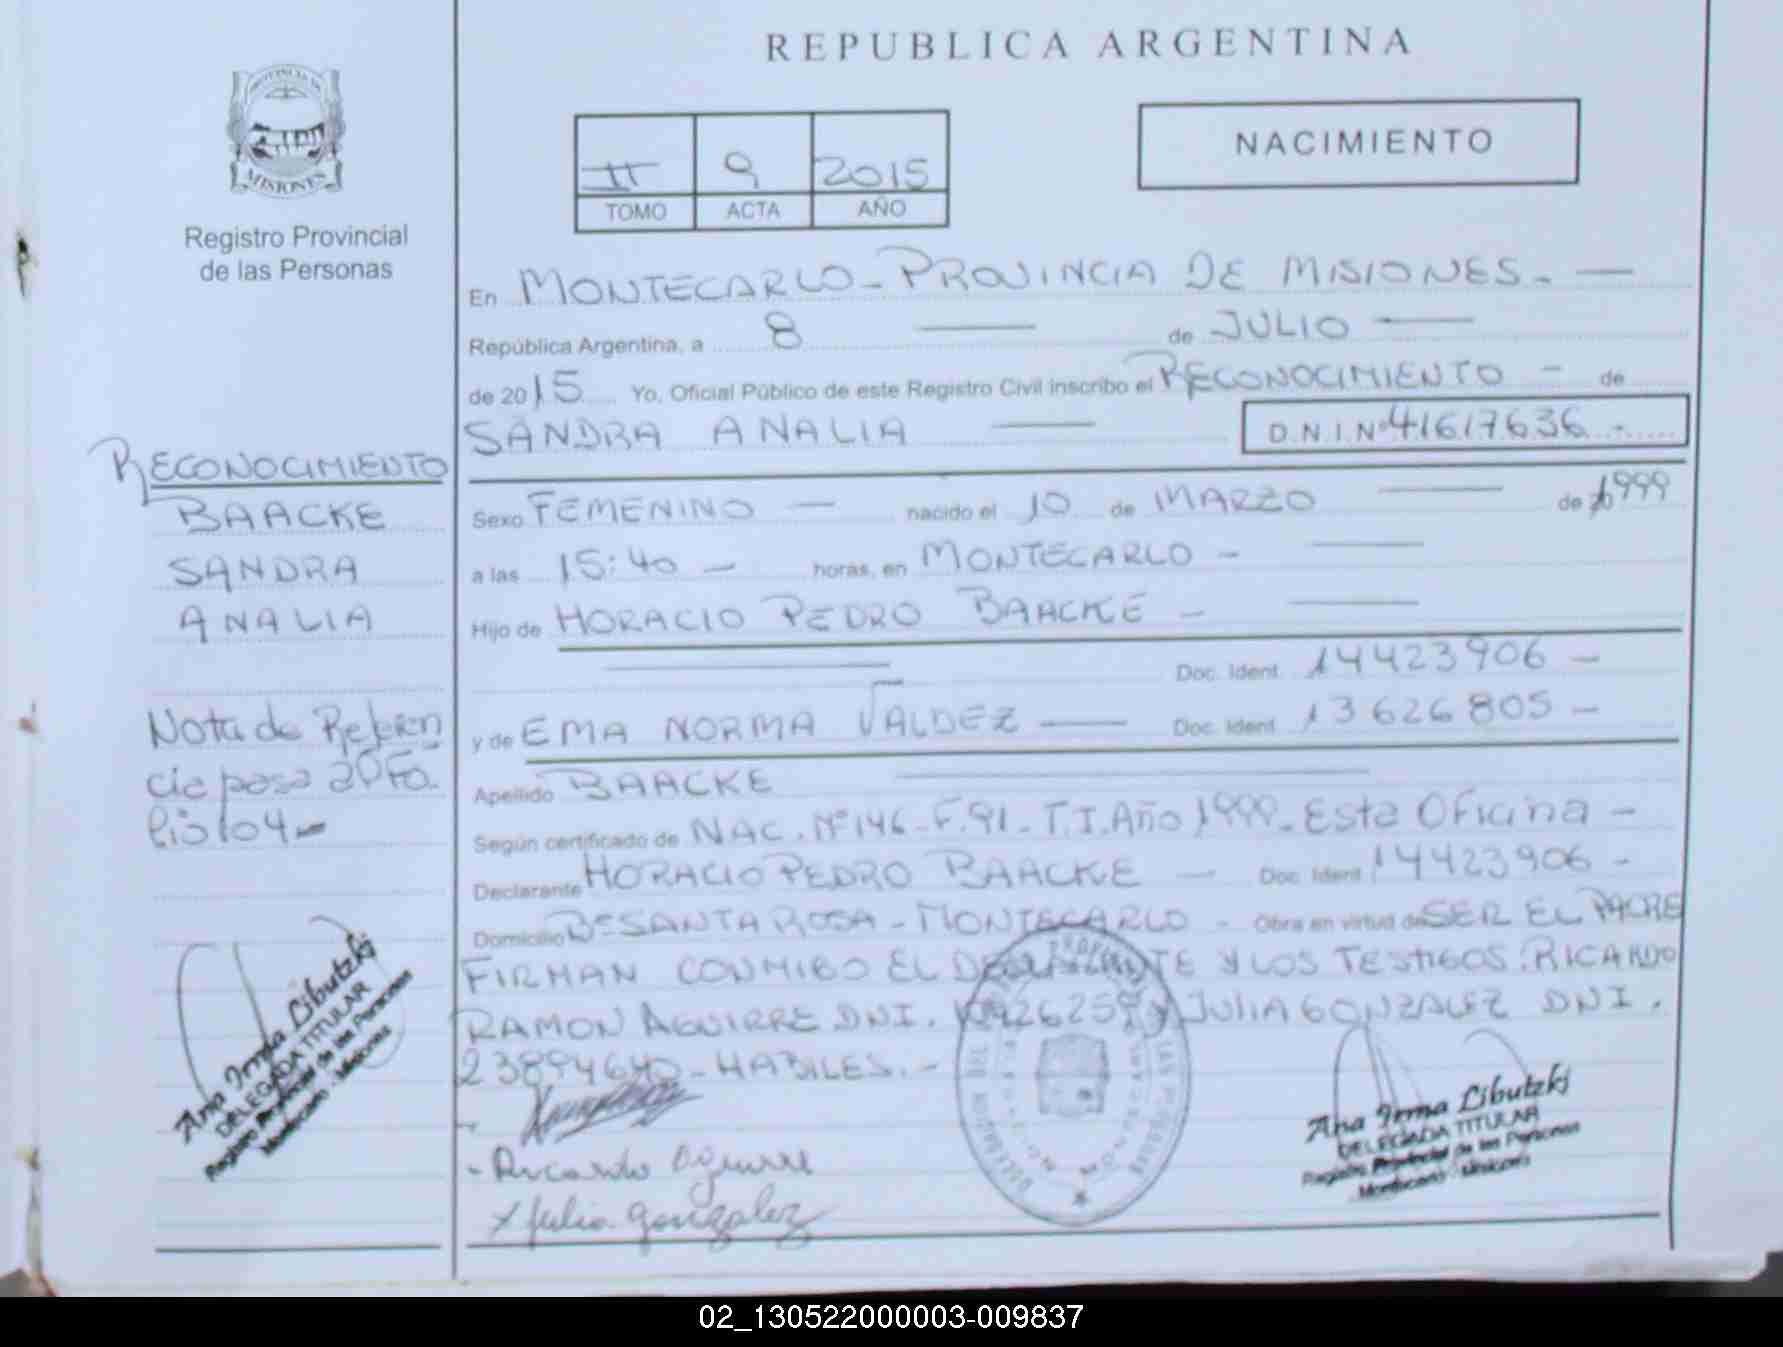 REPUBLICA ARGENTINA
MISIONES
Registro Provincial
de las Personas
II 9 2015
TOMO ACTA AÑO
NACIMIENTO
En MONTECARLO - PROVINCIA DE MISIONES. —
República Argentina, a 8 — de JULIO —
de 2015 Yo, Oficial Público de este Registro Civil inscribo el RECONOCIMIENTO - de
SANDRA ANALIA — D.N.I. Nº 41617636 -
Sexo FEMENINO — nacido el 10 de MARZO — de 1999
a las 15:40 — horas, en MONTECARLO - —
Hijo de HORACIO PEDRO BAACKE - —
— Doc. Ident. 14423906 —
y de EMA NORMA VALDEZ — Doc. Ident. 13626805 —
Apellido BAACKE —
Según certificado de NAC. Nº 146 - F. 91 - T. I. Año 1999 - Esta Oficina -
Declarante HORACIO PEDRO BAACKE — Doc. Ident. 14423906 -
Domicilio Bº SANTA ROSA - MONTECARLO - Obra en virtud de SER EL PADRE
FIRMAN CONMIGO EL DECLARANTE Y LOS TESTIGOS: RICARDO
RAMON AGUIRRE DNI. Y JULIA GONZALEZ DNI.
23894640 - HABILES. -
- Ricardo Aguirre
x Julia gonzalez
RECONOCIMIENTO
BAACKE
SANDRA
ANALIA
Nota de Referen
cia pasa al Fo
lio 104 -
Ana Irma Libutzki
DELEGADA TITULAR
Registro Provincial de las Personas
Montecarlo - Misiones
Ana Irma Libutzki
DELEGADA TITULAR
Registro Provincial de las Personas
Montecarlo - Misiones
02_130522000003-009837